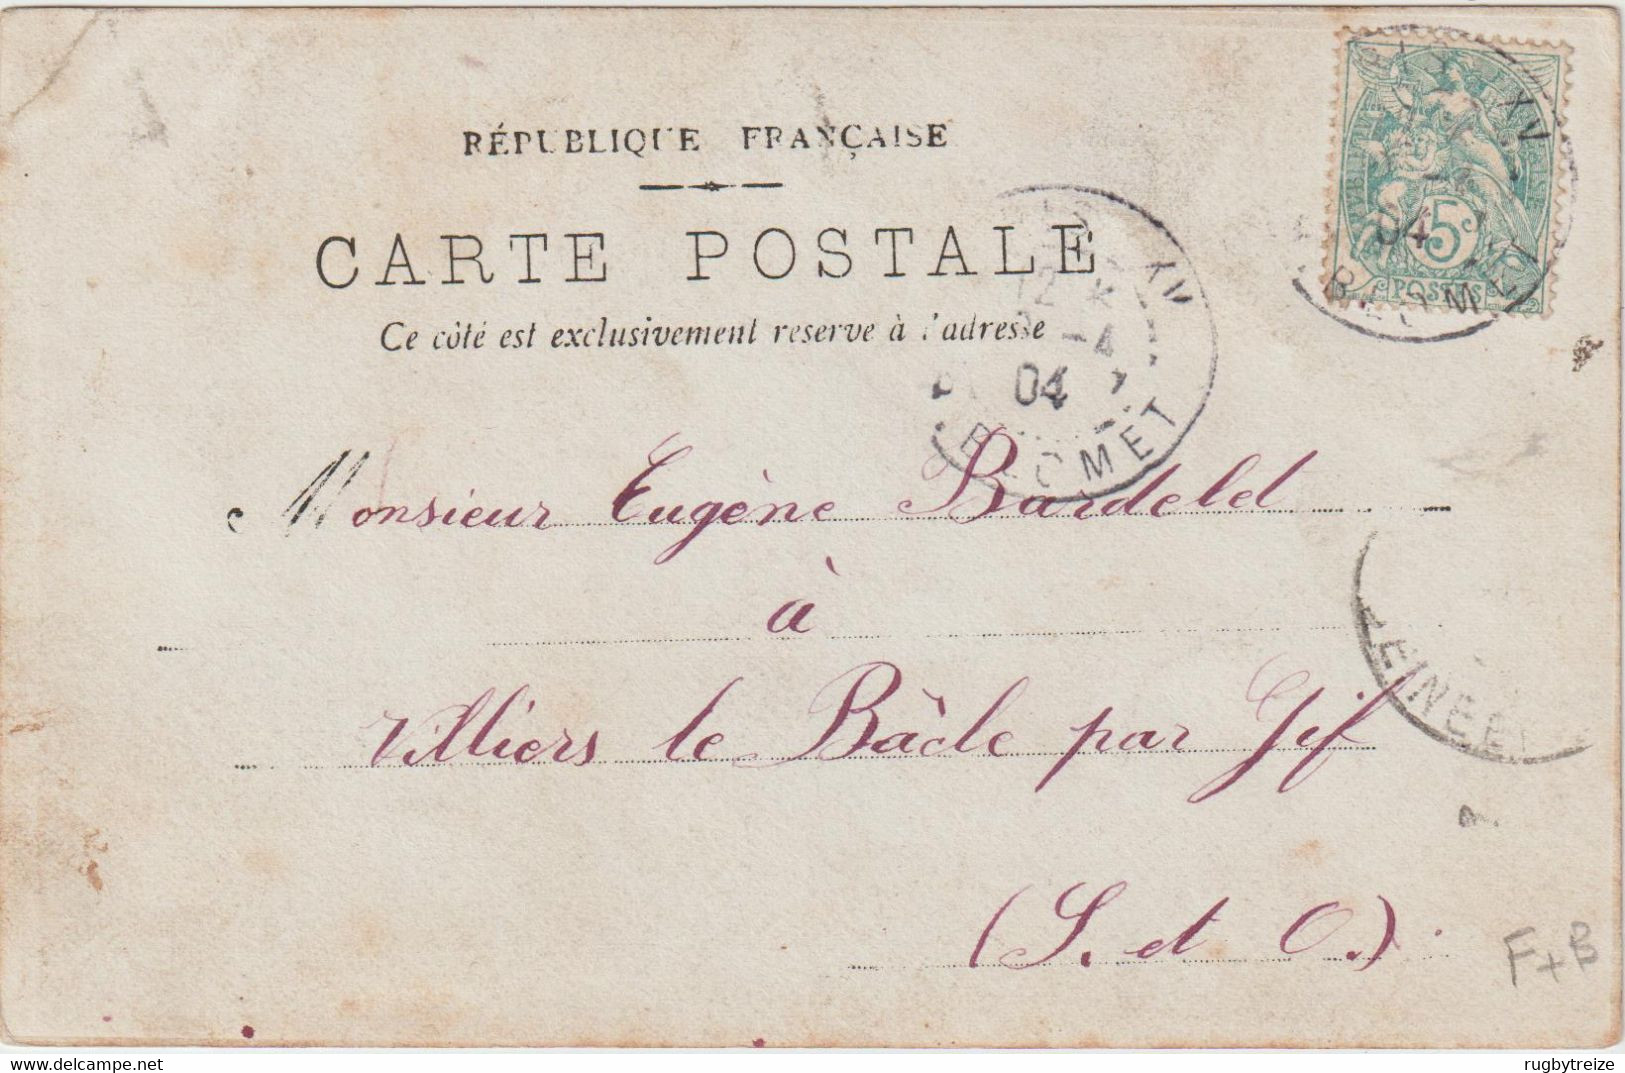 RÉPUBLIQUE FRANÇAISE
CARTE POSTALE
Ce côté est exclusivement reserve à l'adresse
XV
04
5
POSTES
XV
12
-4
04
Monsieur Eugène Bardelet
à
Villiers le Bâcle par Gif
(S. et O.)
F+B
https://www.delcampe.net
rugbytreize